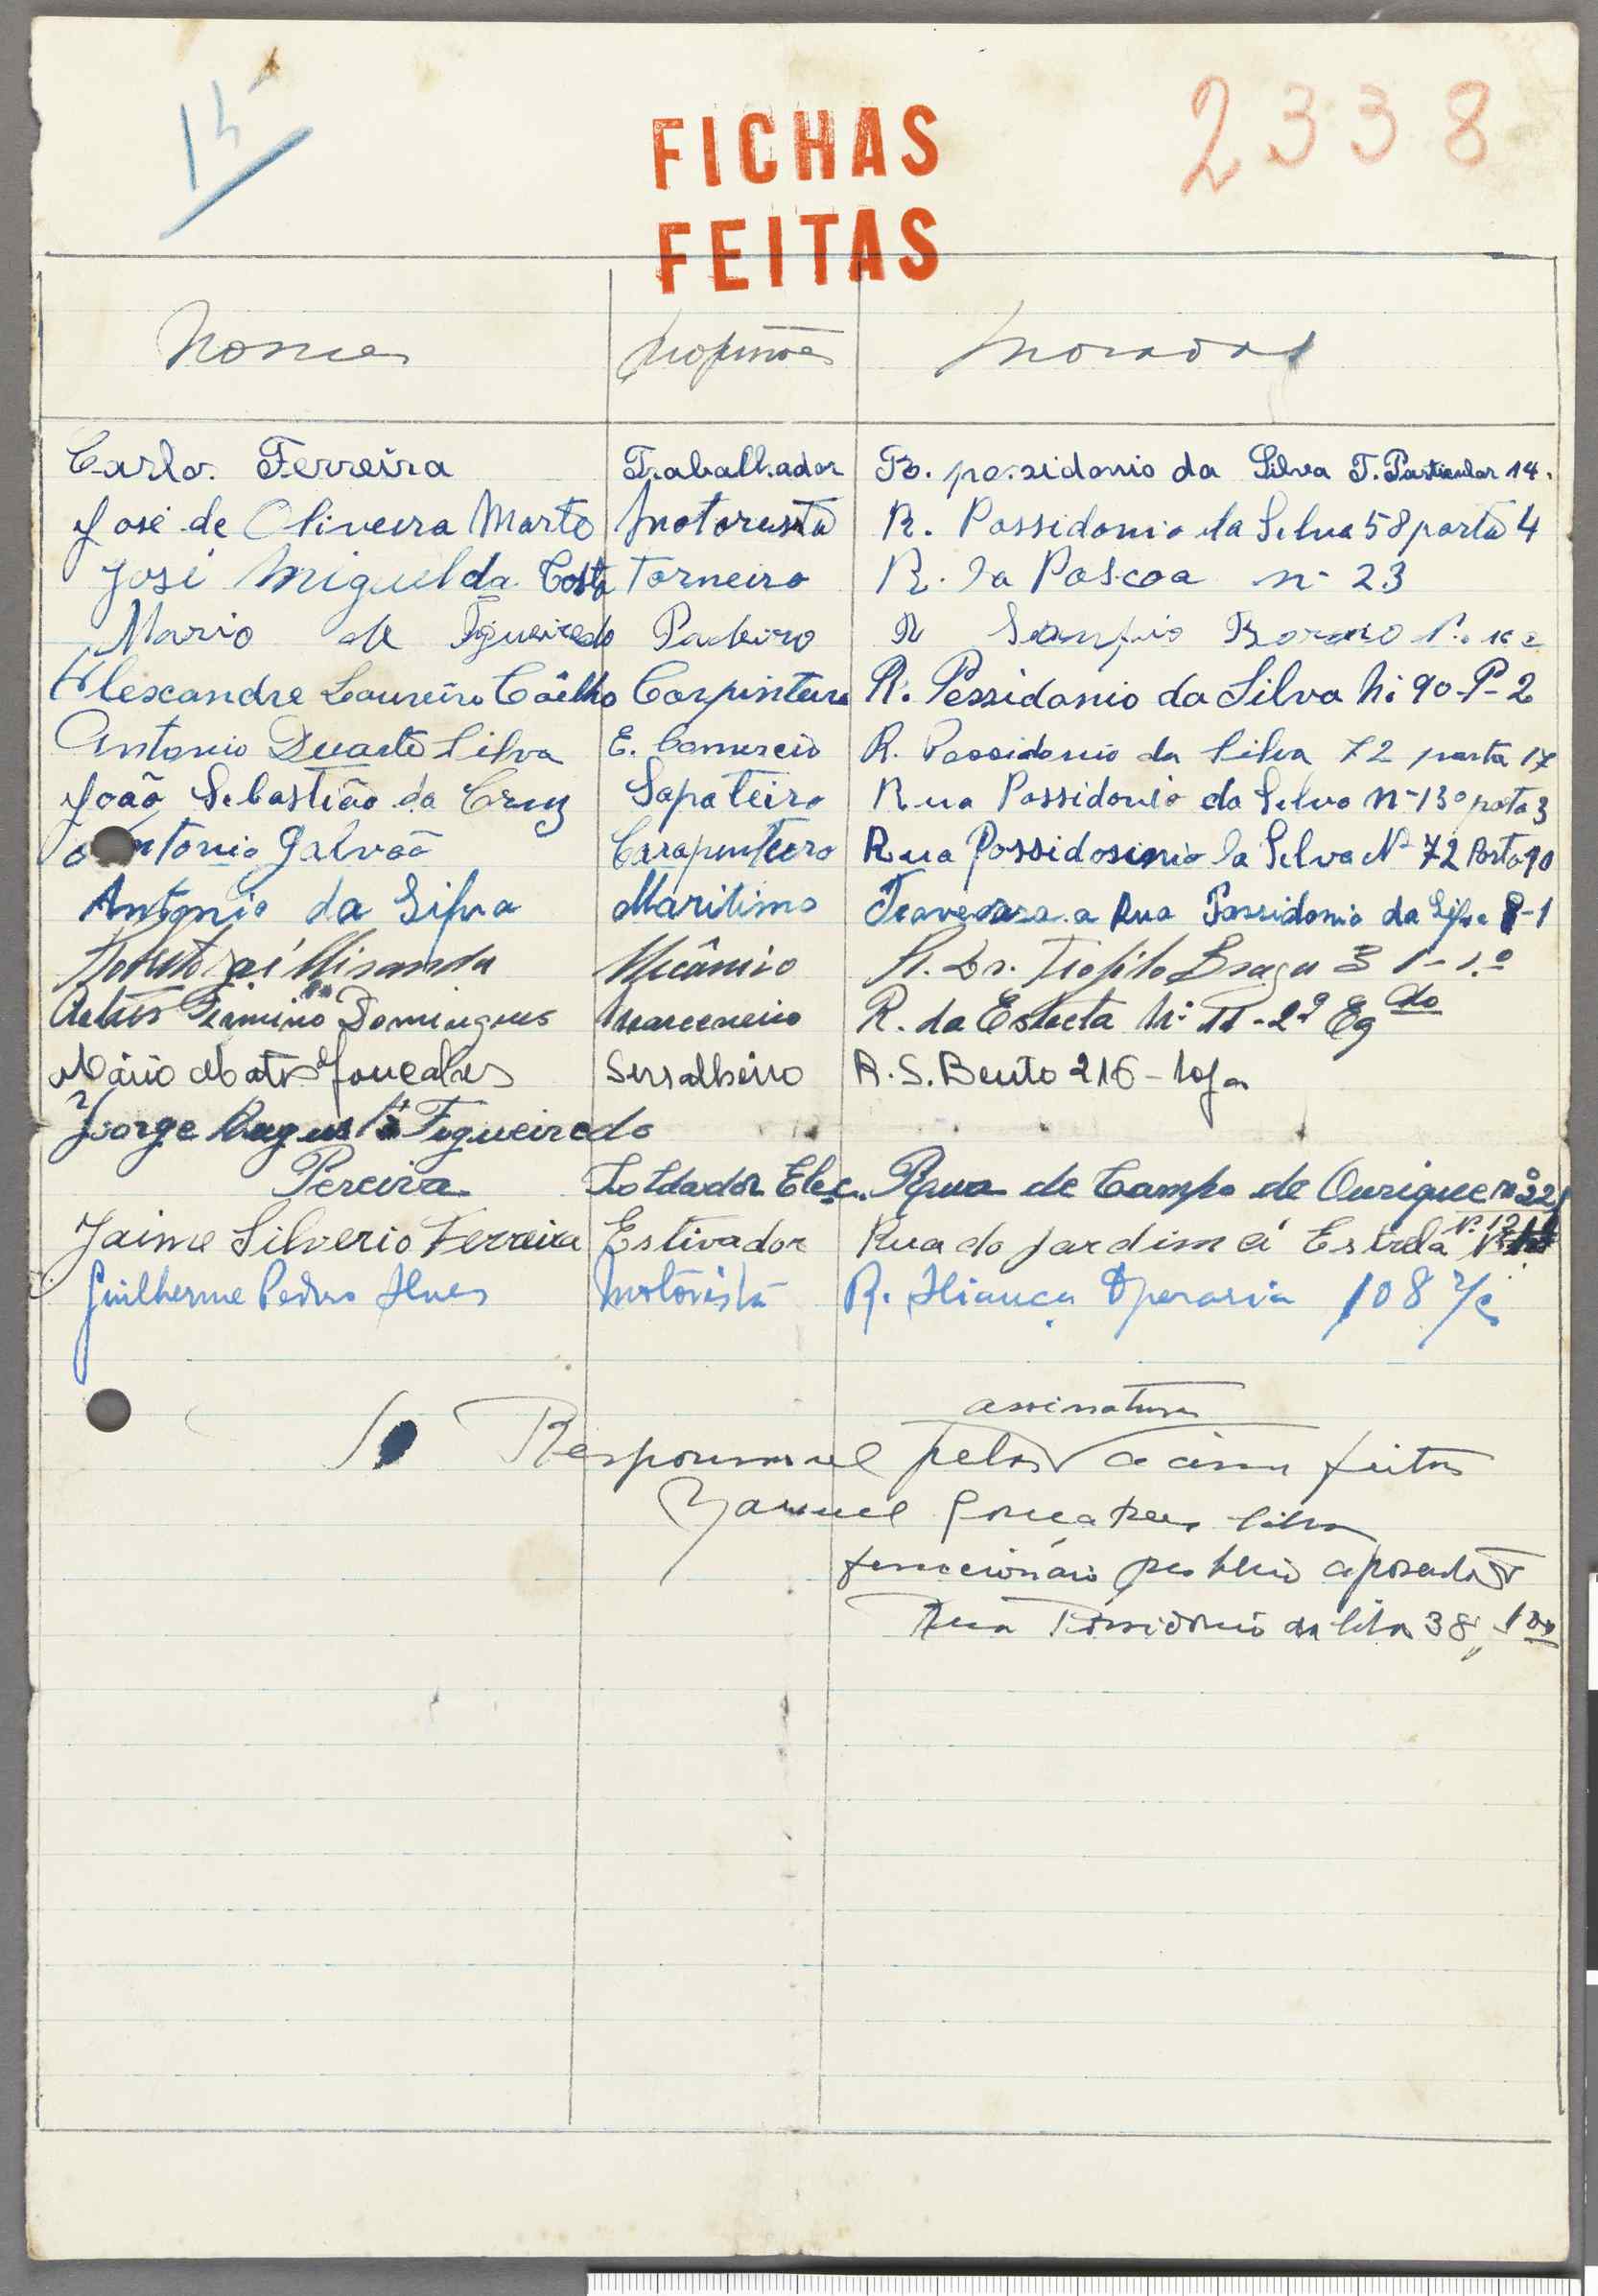 15
2338
FICHAS
FEITAS
Nomes Profissões Moradas
Carlos Ferreira Trabalhador R. posidonio da Silva T. Particular 14.
José de Oliveira Marto Motorista R. Possidonio da Silva 58 porta 4
José Miguel da Costa Torneiro R. da Pascoa nº 23
Mario de Figueiredo Padeiro R Sampio
Alexandre Loureiro Coêlho Carpinteiro R. Pessidonio da Silva Nº 90-P-2
Antonio Duarte Silva E. Comercio R. Possidonio da Silva 72 porta 17
João Sebastião da Cruz Sapateiro Rua Possidonio da Silva nº 130 porta 3
Antonio Galvão Carapinteiro Rua Possidosinio da Silva Nº 72 Porta 90
Antonio da Silva Maritimo Travessa a Rua Possidonio da Silva 8-1
Miranda Mecânico R. Dr. Teofilo Braga
Firmino Domingues Marceneiro R. da Estrela Nº 11-2º Eqdo
Mário Matos Gonçalves Serralheiro R. S. Bento 216-loja
Jorge Augusto Figueiredo
Pereira Soldador Elec. Rua de Campo de Ourique nº 22
Jaime Silverio Ferreira Estivador Rua do Jardim á Estrela Nº 12
Guilherme Pedro Alves Motorista R. Aliança Operaria 108 r/c
assinaturas
O Responsavel pelas acima feitas
Manuel Gonçalves Silva
funcionário publico aposentado
Rua Possidonio da Silva 38, 1º